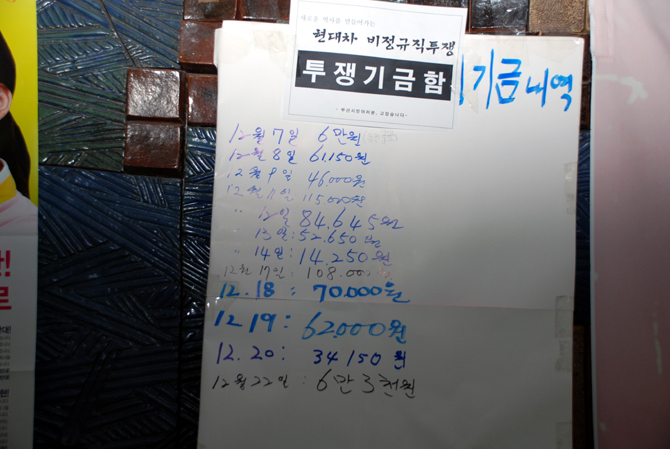 새로운 역사를 만들어가는
현대차 비정규직투쟁
투쟁기금함
기금내역
12월 7일 6만원
12월 8일 61,150원
12월 9일 46,000원
12월 11일 115,000원
" 12일 84.645원
13일:52.650원
" 14일:14.250원
12월 17일: 108.000
12.18: 70.000원
12.19: 62,000원
12.20: 34150원
12월 22일 : 6만 3천원
!
르